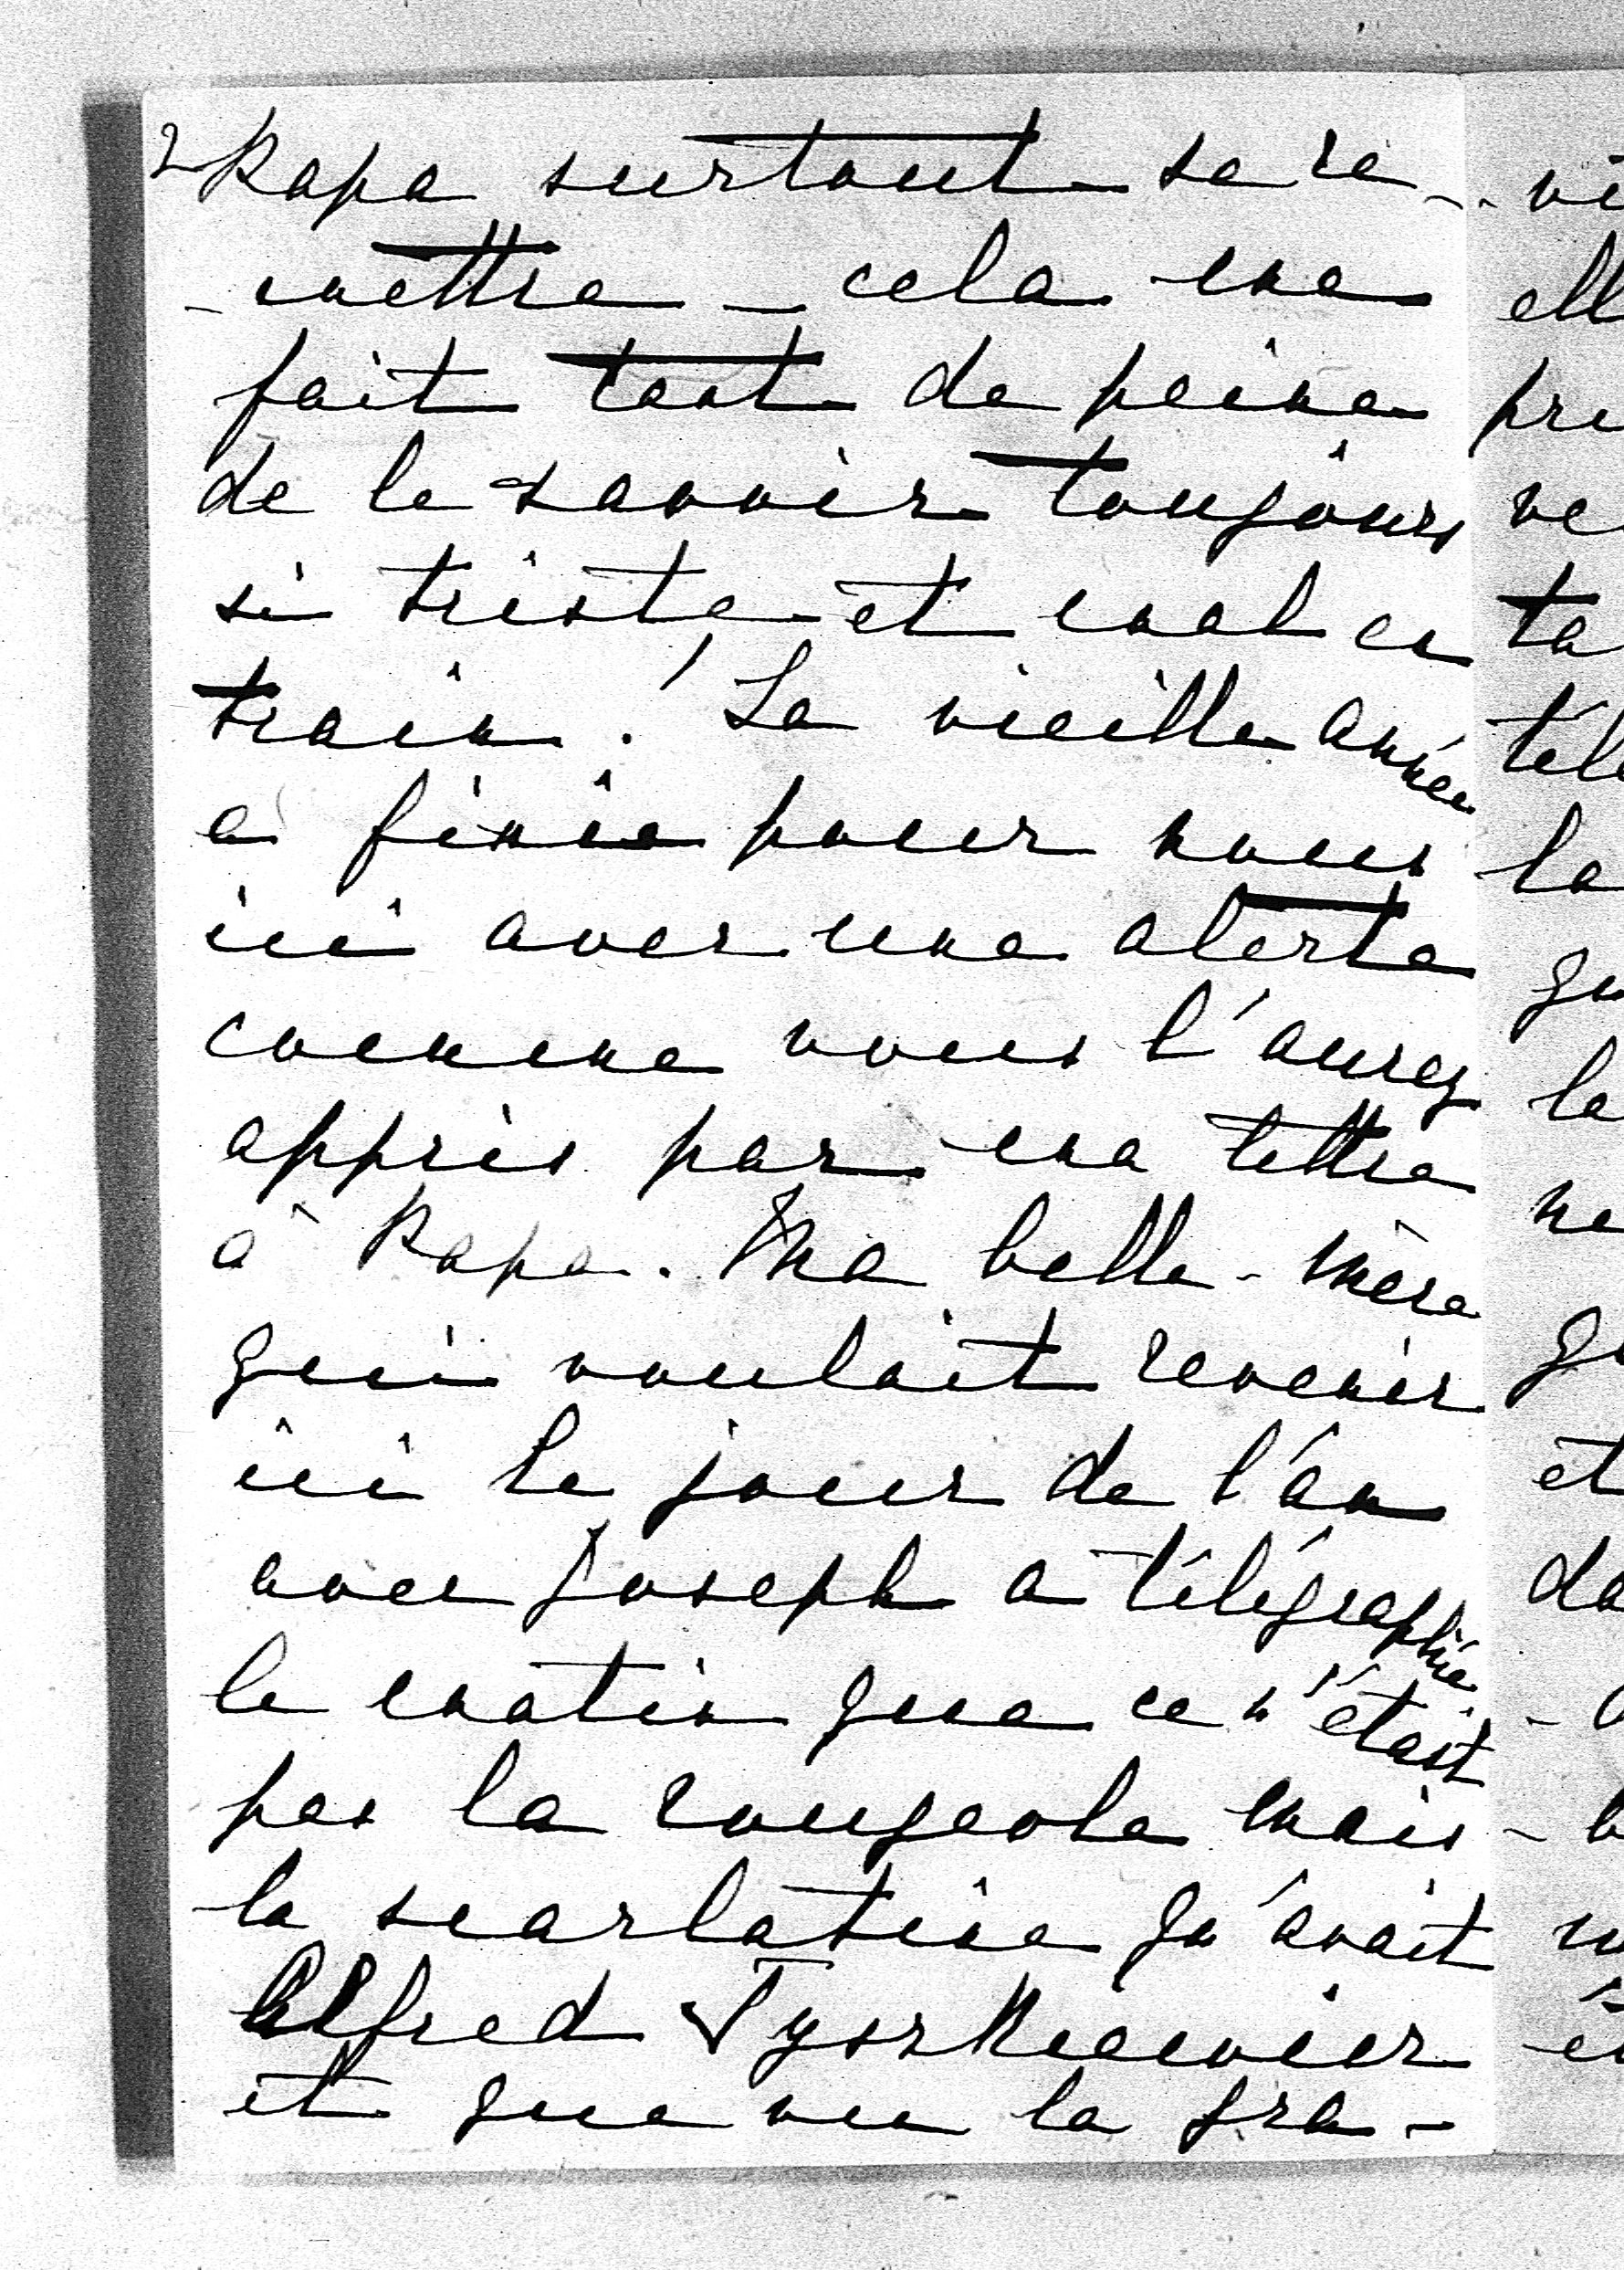 2 Papa surtout se re-
-mettre - cela me
fait tant de peine
de le savoir toujours
si triste et mal en
train! La vieille année
a finie pour nous
ici avec une alerte
comme vous l'aurez
appris par ma lettre
à Papa. Ma belle-mère
qui voulait revenir
ici le jour de l'an
avec Joseph a télégraphiée
le matin que ce n'était
pas la rougeole mais
la scarlatine qu'avait
Alfred Tyszkiewicz
et que vu la gra-